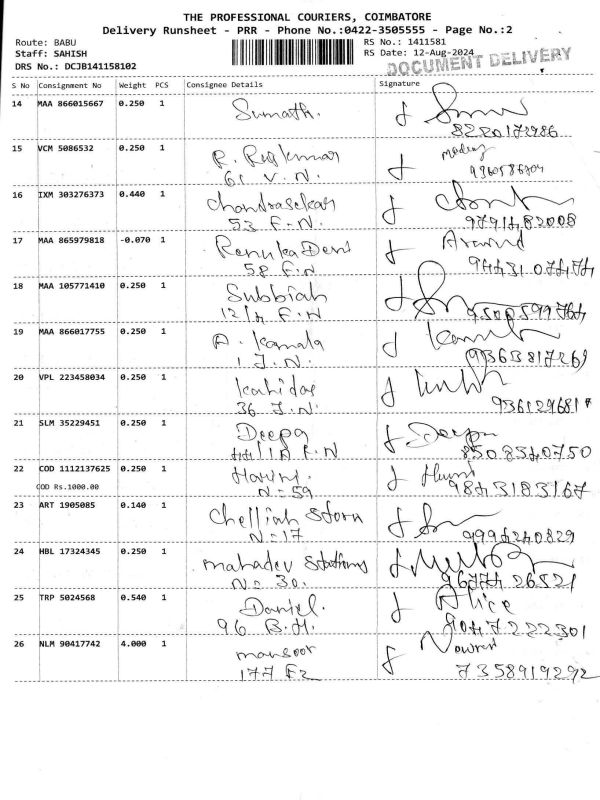 THE PROFESSIONAL COURIERS, COIMBATORE
Delivery Runsheet - PRR - Phone No.:0422-3505555 - Page No.:2
Route: BABU
Staff: SAHISH
DRS No.: DCJB141158102
RS No.: 1411581
RS Date: 12-Aug-2024
DOCUMENT DELIVERY
S No Consignment No Weight PCS Consignee Details Signature
14 MAA 866015667 0.250 1 Sumathi.
8220172986
15 VCM 5086532 0.250 1 R. Rajkumar
61 V.N.
9360586704
16 IXM 303276373 0.440 1 Chandrasekar
53 F.N.
9791482008
17 MAA 865979818 -0.070 1 Renuka Devi Aravind
58 F.N
9443107474
18 MAA 105771410 0.250 1 Subbiah
12/4 F.N
9500599764
19 MAA 866017755 0.250 1 A. Kamala
1 J.N.
9363817269
20 VPL 223458034 0.250 1
36 J.N.
21 SLM 35229451 0.250 1 Deepa Deepa
F.N
8508340750
22 COD 1112137625 0.250 1
COD Rs.1000.00 N=59
9843183167
23 ART 1905085 0.140 1 Chelliah Store
N=17
9994240829
24 HBL 17324345 0.250 1 Mahadev
N= 30.
9677426521
25 TRP 5024568 0.540 1 Daniel. Alice
96 B.H.
9047222301
26 NLM 90417742 4.000 1 mansoor
177 F2
7358919292